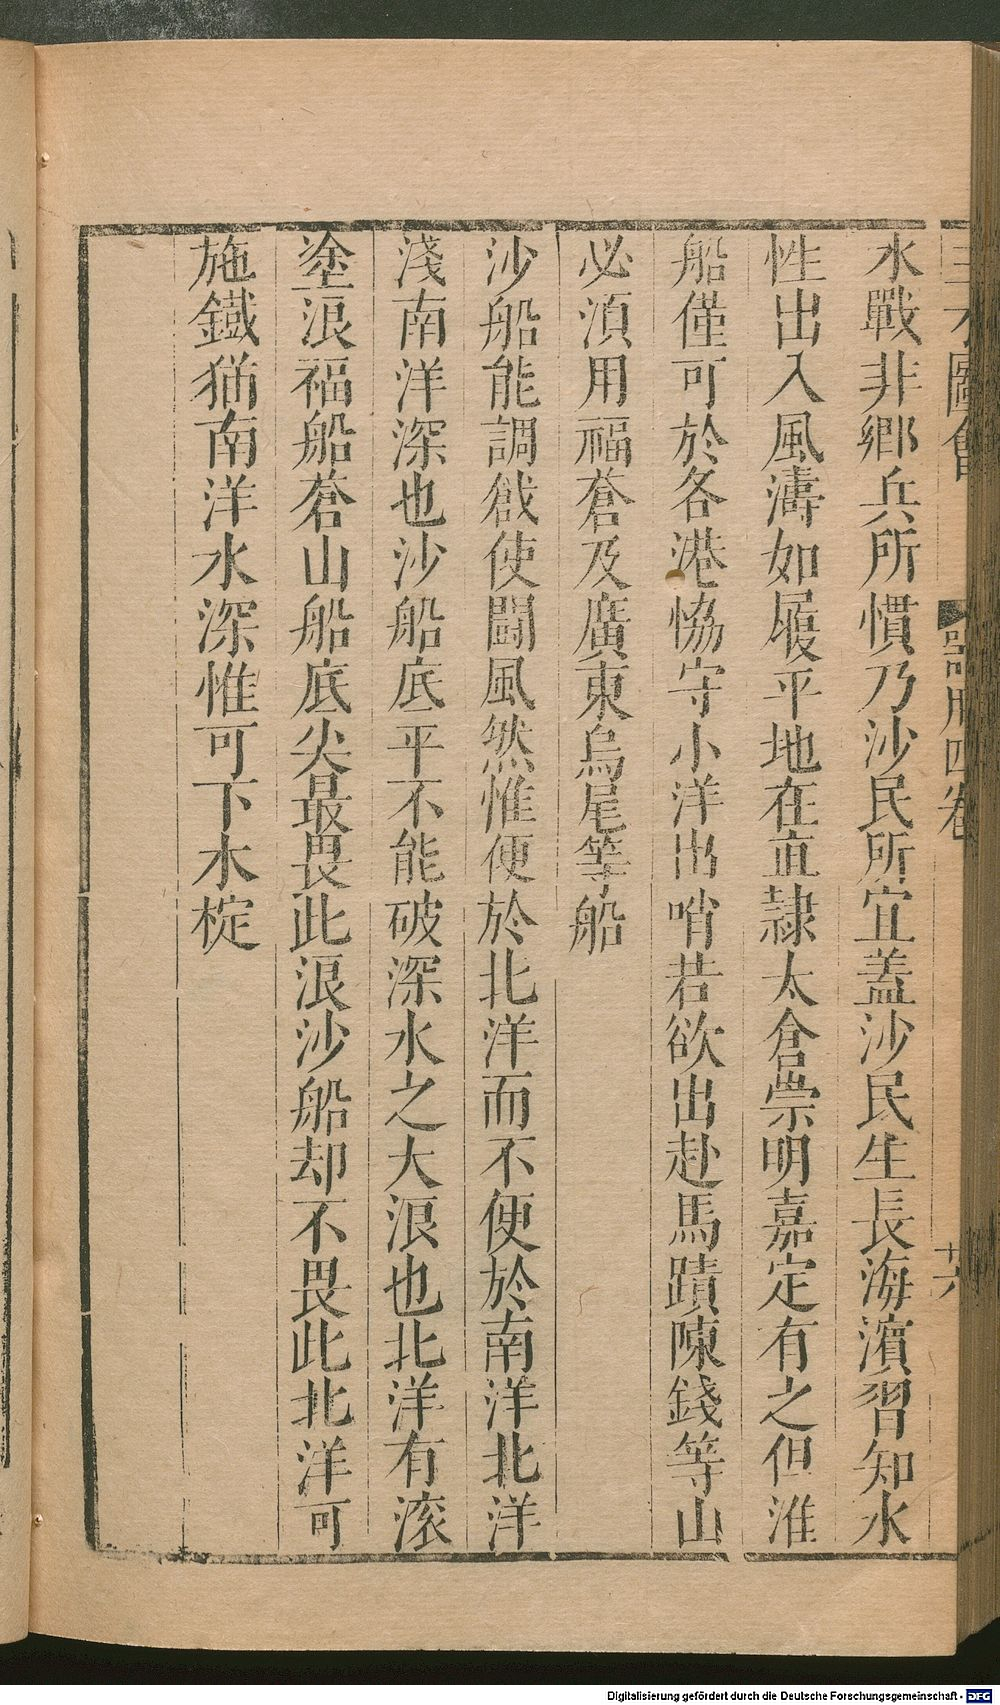 三才圖會
器用四卷
十六
水戰非鄉兵所慣乃沙民所宜蓋沙民生長海濱習知水
性出入風濤如履平地在直隸太倉崇明嘉定有之但淮
船僅可於各港協守小洋出哨若欲出赴馬蹟陳錢等山
必須用福蒼及廣東烏尾等船
沙船能調戧使鬪風然惟便於北洋而不便於南洋北洋
淺南洋深也沙船底平不能破深水之大浪也北洋有滾
塗浪福船蒼山船底尖最畏此浪沙船却不畏此北洋可
施鐵猫南洋水深惟可下木椗
Digitalisierung gefördert durch die Deutsche Forschungsgemeinschaft - DFG